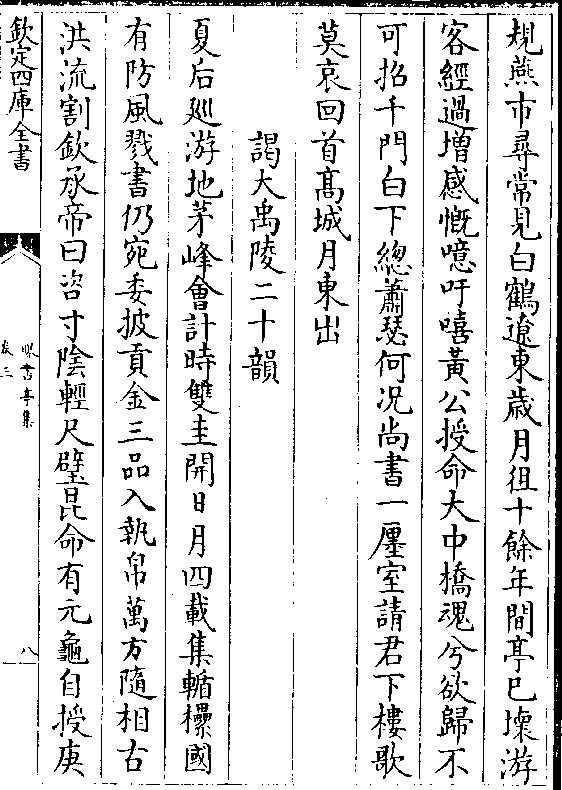 規燕市尋常見白鶴遼東歲月徂十餘年間亭已壞游
客經過增感慨噫吁嘻黄公授命大中橋魂兮欲歸不
可招千門白下總蕭瑟何况尚書一㕓室請君下樓歌
莫哀回首髙城月東出
謁大禹陵二十韻
夏后廵游地茅峰會計時雙圭開日月四載集輴欙國
有防風戮書仍宛委披貢金三品入執帛萬方隨相古
洪流割欽承帝曰咨寸隂輕尺璧昆命有元龜自授庚
欽定四庫全書
曝書亭集
卷三
八